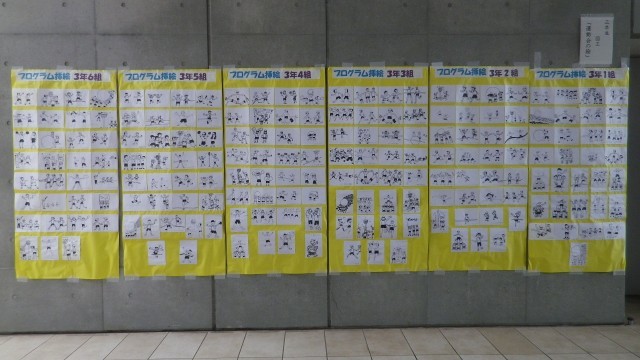 プログラム挿絵 3年6組
プログラム挿絵 3年5組
プログラム挿絵 3年4組
プログラム挿絵 3年3組
プログラム挿絵 3年2組
プログラム挿絵 3年1組